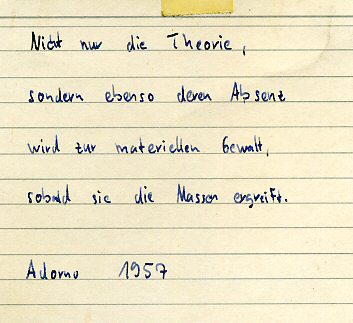 Nicht nur die Theorie,
sondern ebenso deren Absenz
wird zur materiellen Gewalt,
sobald sie die Massen ergreift.
Adorno 1957